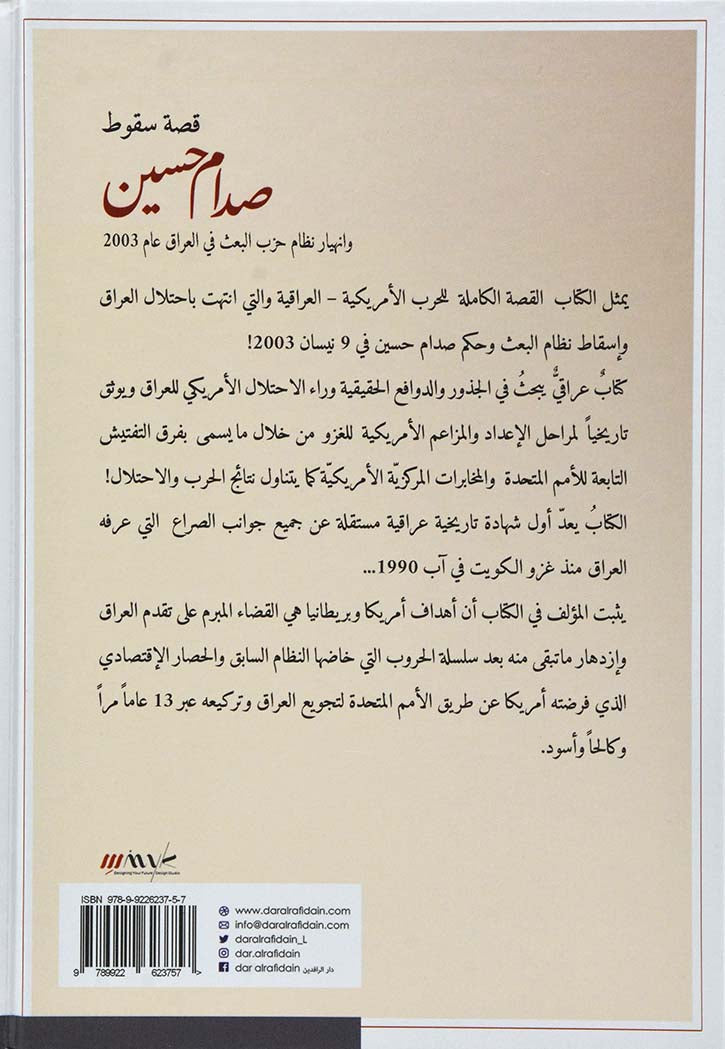 قصة سقوط
صدام حسين
وانهيار نظام حزب البعث في العراق عام 2003
يمثل الكتاب القصة الكاملة للحرب الأمريكية – العراقية والتي انتهت باحتلال العراق
وإسقاط نظام البعث وحكم صدام حسين في 9 نيسان 2003!
كتابٌ عراقيٌّ يبحثُ في الجذور والدوافع الحقيقية وراء الاحتلال الأمريكي للعراق ويوثق
تاريخياً لمراحل الإعداد والمزاعم الأمريكية للغزو من خلال ما يسمى بفرق التفتيش
التابعة للأمم المتحدة والمخابرات المركزيّة الأمريكيّة كما يتناول نتائج الحرب والاحتلال!
الكتابُ يعدّ أول شهادة تاريخية عراقية مستقلة عن جميع جوانب الصراع التي عرفه
العراق منذ غزو الكويت في آب 1990...
يثبت المؤلف في الكتاب أن أهداف أمريكا وبريطانيا هي القضاء المبرم على تقدم العراق
وإزدهار ماتبقى منه بعد سلسلة الحروب التي خاضها النظام السابق والحصار الإقتصادي
الذي فرضته أمريكا عن طريق الأمم المتحدة لتجويع العراق وتركيعه عبر 13 عاماً مراً
وكالحاً وأسود.
Designing Your Future / Design Studio
ISBN 978-9-9226237-5-7
9 789922 623757 >
www.daralrafidain.com
info@daralrafidain.com
daralrafidain_L
dar.alrafidain
dar alrafidain دار الرافدين